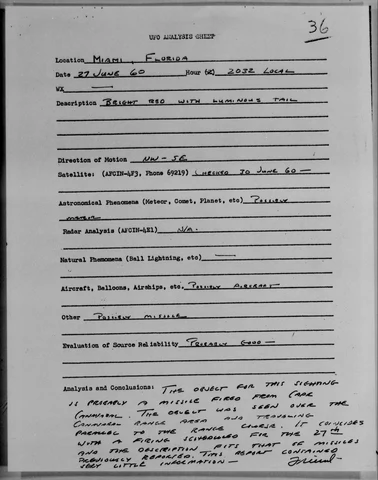 36
UFO ANALYSIS SHEET
Location MIAMI, FLORIDA
Date 27 JUNE 60 Hour (Z) 2032 LOCAL
WX —
Description BRIGHT RED WITH LUMINOUS TAIL
Direction of Motion NW - SE
Satellite: (AFCIN-4F3, Phone 69219) CHECKED 30 JUNE 60 —
Astronomical Phenomena (Meteor, Comet, Planet, etc) POSSIBLY
METEOR
Radar Analysis (AFCIN-4E1) N/A.
Natural Phenomena (Ball Lightning, etc) —
Aircraft, Balloons, Airships, etc. POSSIBLY AIRCRAFT
Other POSSIBLY MISSILE
Evaluation of Source Reliability PROBABLY GOOD —
Analysis and Conclusions: THE OBJECT FOR THIS SIGHTING
IS PROBABLY A MISSILE FIRED FROM CAPE
CANAVERAL. THE OBJECT WAS SEEN OVER THE
CANAVERAL RANGE AREA AND TRAVELING
PARALLEL TO THE RANGE COURSE. IT COINCIDES
WITH A FIRING SCHEDULED FOR THE 27th
AND THE DESCRIPTION FITS THAT OF MISSILES
PREVIOUSLY REPORTED. THIS REPORT CONTAINED
VERY LITTLE INFORMATION —